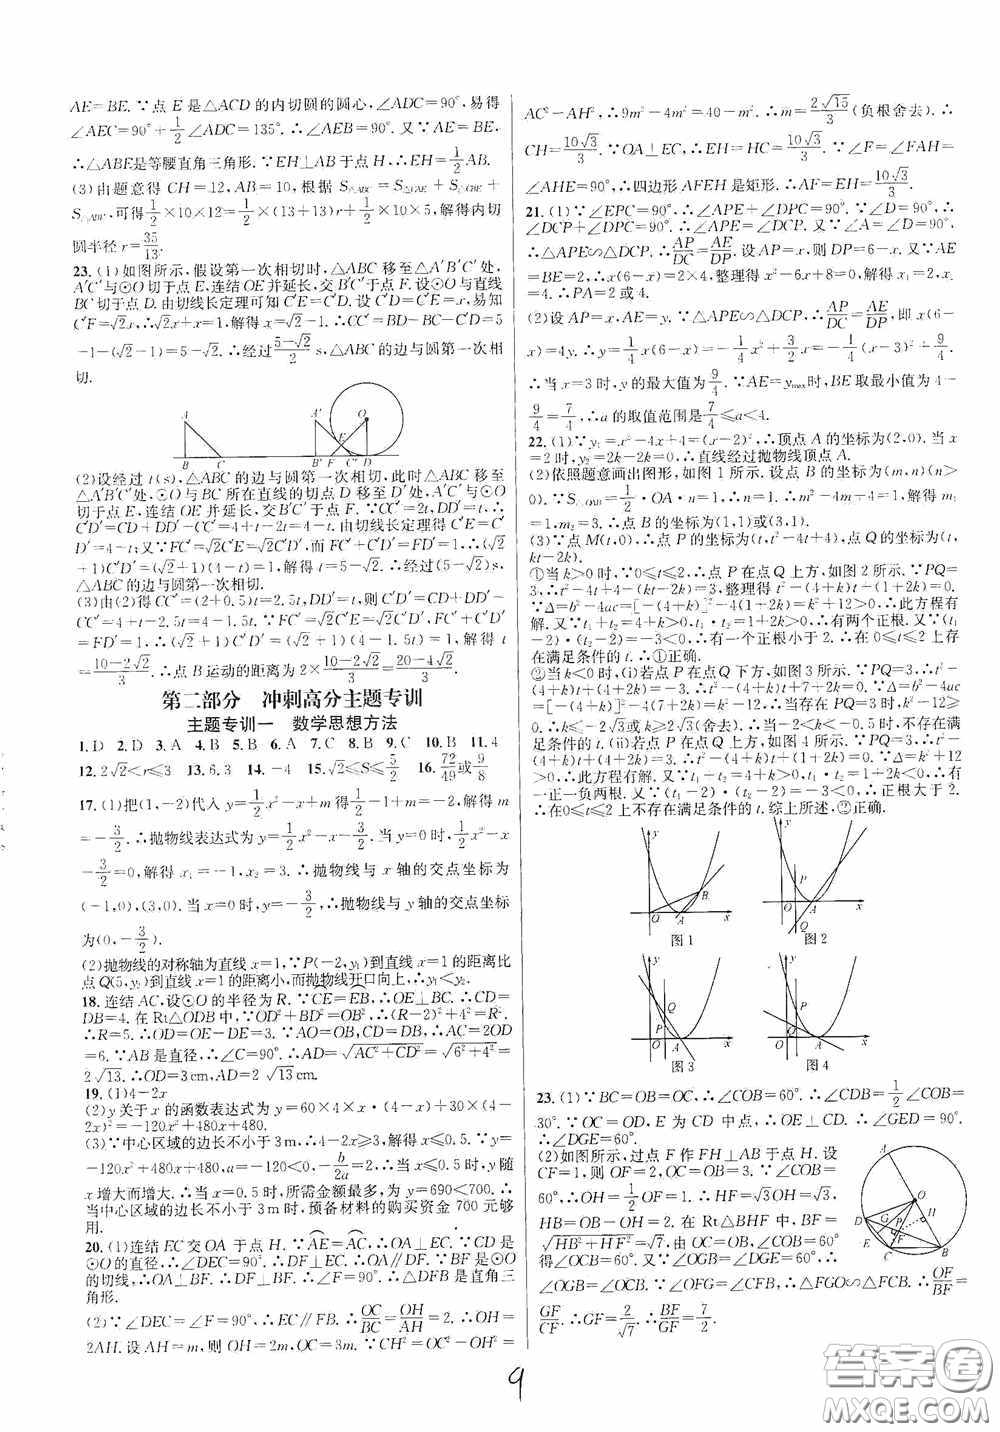 AE=BE.∵点 E 是△ACD 的内切圆的圆心,∠ADC=90°,易得
∠AEC=90°+1/2∠ADC=135°.∴∠AEB=90°.又∵AE=BE,
∴△ABE是等腰直角三角形.∵EH⊥AB于点H,∴EH=1/2AB.
(3)由题意得 CH=12,AB=10,根据 S△ABC=S△CAE+S△CBE+
S△ABE,可得1/2×10×12=1/2×(13+13)r+1/2×10×5,解得内切
圆半径 r=35/13.
23.(1)如图所示,假设第一次相切时,△ABC 移至△A′B′C′处,
A′C′与⊙O切于点E,连结OE并延长,交B′C′于点F.设⊙O与直线
BC切于点D.由切线长定理可知 C′E=C′D.设C′D=C′E=x,易知
C′F=√2x,∴√2x+x=1,解得 x=√2-1.∴CC′=BD-BC-C′D=5
-1-(√2-1)=5-√2.∴经过(5-√2)/2 s,△ABC 的边与圆第一次相
切.
A A′ O E B C B′ F C′ D
(2)设经过 t(s),△ABC的边与圆第一次相切,此时△ABC 移至
△A′B′C′处,⊙O与BC所在直线的切点D移至D′处.A′C′与⊙O
切于点E,连结OE并延长,交B′C′于点F.∵CC′=2t,DD′=t,∴
C′D′=CD+DD′-CC′=4+t-2t=4-t.由切线长定理得C′E=C′D′
=4-t;又∵FC′=√2C′E=√2C′D′,而FC′+C′D′=FD′=1,∴(√2
+1)C′D′=(√2+1)(4-t)=1,解得 t=5-√2.∴经过(5-√2)s,
△ABC的边与圆第一次相切.
(3)由(2)得CC′=(2+0.5)t=2.5t,DD′=t,则C′D′=CD+DD′-
CC′=4+t-2.5t=4-1.5t.∵FC′=√2C′E=√2C′D′,FC′+C′D′
=FD′=1,∴(√2+1)C′D′=(√2+1)(4-1.5t)=1,解得 t=
(10-2√2)/3.∴点 B 运动的距离为 2×(10-2√2)/3=(20-4√2)/3.
第二部分 冲刺高分主题专训
主题专训一 数学思想方法
1.D 2.D 3.A 4.B 5.B 6.A 7.C 8.B 9.C 10.B 11.4
12.2√2<r≤3 13.6,3 14.-4 15.√2≤S≤5/2 16.72/49或9/8
17.(1)把(1,-2)代入 y=1/2x²-x+m得1/2-1+m=-2,解得 m
=-3/2.∴抛物线表达式为 y=1/2x²-x-3/2.当y=0时,1/2x²-x
-3/2=0,解得 x₁=-1,x₂=3.∴抛物线与 x 轴的交点坐标为
(-1,0),(3,0).当x=0时,y=-3/2,∴抛物线与 y轴的交点坐标
为(0,-3/2).
(2)抛物线的对称轴为直线 x=1,∵P(-2,y₁)到直线 x=1的距离比
点Q(5,y₂)到直线 x=1的距离小,而抛物线开口向上,∴y₁<y₂.
18.连结AC,设⊙O的半径为R.∵CE=EB,∴OE⊥BC.∴CD=
DB=4.在Rt△ODB中,∵OD²+BD²=OB²,∴(R-2)²+4²=R².
∴R=5.∴OD=OE-DE=3.∵AO=OB,CD=DB,∴AC=2OD
=6.∵AB是直径,∴∠C=90°.∴AD=√(AC²+CD²)=√(6²+4²)=
2√13.∴OD=3cm,AD=2√13cm.
19.(1)4-2x
(2)y 关于 x 的函数表达式为 y=60×4×x(4-x)+30×(4-
2x)²=-120x²+480x+480.
(3)∵中心区域的边长不小于3m,∴4-2x≥3,解得 x≤0.5.∵y=
-120x²+480x+480,a=-120<0,-b/2a=2.∴当x≤0.5时,y随
x增大而增大.∴当 x=0.5时,所需金额最多,为 y=690<700.∴
当中心区域的边长不小于3m时,预备材料的购买资金 700 元够
用.
20.(1)连结EC交OA于点H.∵AE=AC,∴OA⊥EC.∵CD是
⊙O的直径,∴∠DEC=90°.∴DF⊥EC.∴OA∥DF.∵BF是⊙O
的切线,∴OA⊥BF.∴DF⊥BF.∴∠F=90°.∴△DFB是直角三
角形.
(2)∵∠DEC=∠F=90°,∴EC∥FB.∴OC/BC=OH/AH=2.∴OH=
2AH.设AH=m,则 OH=2m,OC=3m.∵CH²=OC²-OH²=
AC²-AH²,∴9m²-4m²=40-m².∴m=2√15/3(负根舍去).∴
CH=10√3/3.∵OA⊥EC,∴EH=HC=10√3/3.∵∠F=∠FAH=
∠AHE=90°,∴四边形 AFEH 是矩形.∴AF=EH=10√3/3.
21.(1)∵∠EPC=90°,∴∠APE+∠DPC=90°.∵∠D=90°,∴
∠DCP+∠DPC=90°.∴∠APE=∠DCP.又∵∠A=∠D=90°,
∴△APE∽△DCP.∴AP/DC=AE/DP.设 AP=x,则 DP=6-x.又∵AE=
BE=2,∴x(6-x)=2×4,整理得 x²-6x+8=0,解得 x₁=2,x₂=
4.∴PA=2或4.
(2)设 AP=x,AE=y.∵△APE∽△DCP,∴AP/DC=AE/DP,即 x(6-
x)=4y.∴y=1/4x(6-x)=-1/4x²+3/2x=-1/4(x-3)²+9/4.
∴当 x=3时,y的最大值为9/4.∵AE=ymax时,BE取最小值为4-
9/4=7/4,∴a 的取值范围是7/4≤a<4.
22.(1)∵y₁=x²-4x+4=(x-2)²,∴顶点A的坐标为(2,0).当 x
=2时,y₂=2k-2k=0,∴直线经过抛物线顶点A.
(2)依照题意画出图形,如图1所示.设点 B 的坐标为(m,n)(n>
0).∵S△OAB=1/2·OA·n=1,∴n=1,∴m²-4m+4=1,解得 m₁=
1,m₂=3.∴点 B 的坐标为(1,1)或(3,1).
(3)∵点 M(t,0),∴点 P 的坐标为(t,t²-4t+4),点 Q 的坐标为(t,
kt-2k).
①当k>0时,∵0≤t≤2,∴点P在点Q上方,如图2所示.∵PQ=
3,∴t²-4t+4-(kt-2k)=3,整理得 t²-(4+k)t+(1+2k)=0.
∵Δ=b²-4ac=[-(4+k)]²-4(1+2k)=k²+12>0,∴此方程有
解.又∵t₁+t₂=4+k>0,t₁·t₂=1+2k>0,∴有两个正根.又∵(t₁
-2)·(t₂-2)=-3<0,∴有一个正根小于2.∴在0≤t≤2上
存在满足条件的 t.∴①正确.
②当k<0时,(i)若点P在点Q下方,如图3所示.∵PQ=3,∴t²
-(4+k)t+4+2k=-3.∴t²-(4+k)t+(7+2k)=0.∵Δ=b²-4ac
=[-(4+k)]²-4(7+2k)=k²-12,∴当存在PQ=3时,k²-12
≥0.∴k≤-2√3或k≥2√3(舍去).∴当-2<k<-0.5时,不存在满
足条件的 t.(ii)若点P在点Q上方,如图4所示.∵PQ=3,∴t²
-(4+k)t+4+2k=3.∴t²-(4+k)t+(1+2k)=0.∵Δ=k²+12
>0,∴此方程有解.又∵t₁+t₂=4+k>0,t₁·t₂=1+2k<0,∴有
一正一负两根.又∵(t₁-2)·(t₂-2)=-3<0,∴正根大于2.
∴在0≤t≤2上不存在满足条件的 t.综上所述,②正确.
y B O A x 图1
y P O A x Q 图2
y Q P O A x 图3
y P Q O A x 图4
23.(1)∵BC=OB=OC,∴∠COB=60°.∴∠CDB=1/2∠COB=
30°.∵OC=OD,E 为 CD 中点,∴OE⊥CD.∴∠GED=90°.
∴∠DGE=60°.
(2)如图所示,过点 F 作FH⊥AB于点 H.设
CF=1,则OF=2,OC=OB=3.∵∠COB=
60°,∴OH=1/2OF=1.∴HF=√3OH=√3,
HB=OB-OH=2.在Rt△BHF中,BF=
√(HB²+HF²)=√7,由 OC=OB,∠COB=60°
得∠OCB=60°.又∵∠OGB=∠DGE=60°,
∴∠OGB=∠OCB.∵∠OFG=∠CFB,∴△FGO∽△FCB.∴OF/BF=
GF/CF.∴GF=2/√7.∴BF/GF=7/2.
A O H D G P F E C B
9
答案圈
MXQE.COM